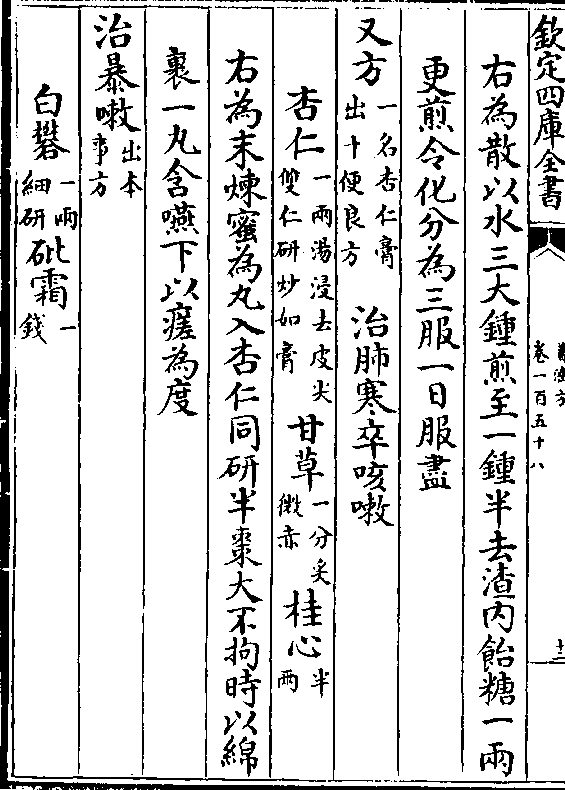 欽定四庫全書
普濟方
卷一百五十八
十二
右為散以水三大鍾煎至一鍾半去渣内飴糖一兩
更煎令化分為三服一日服盡
又方一名杏仁膏出十便良方 治肺寒卒咳嗽
杏仁一兩湯浸去皮尖雙仁研炒如膏 甘草一分炙微赤 桂心半兩
右為末煉蜜為丸入杏仁同研半棗大不拘時以綿
裹一丸含嚥下以瘥為度
治暴嗽出本事方
白礬一兩細研 砒霜一錢